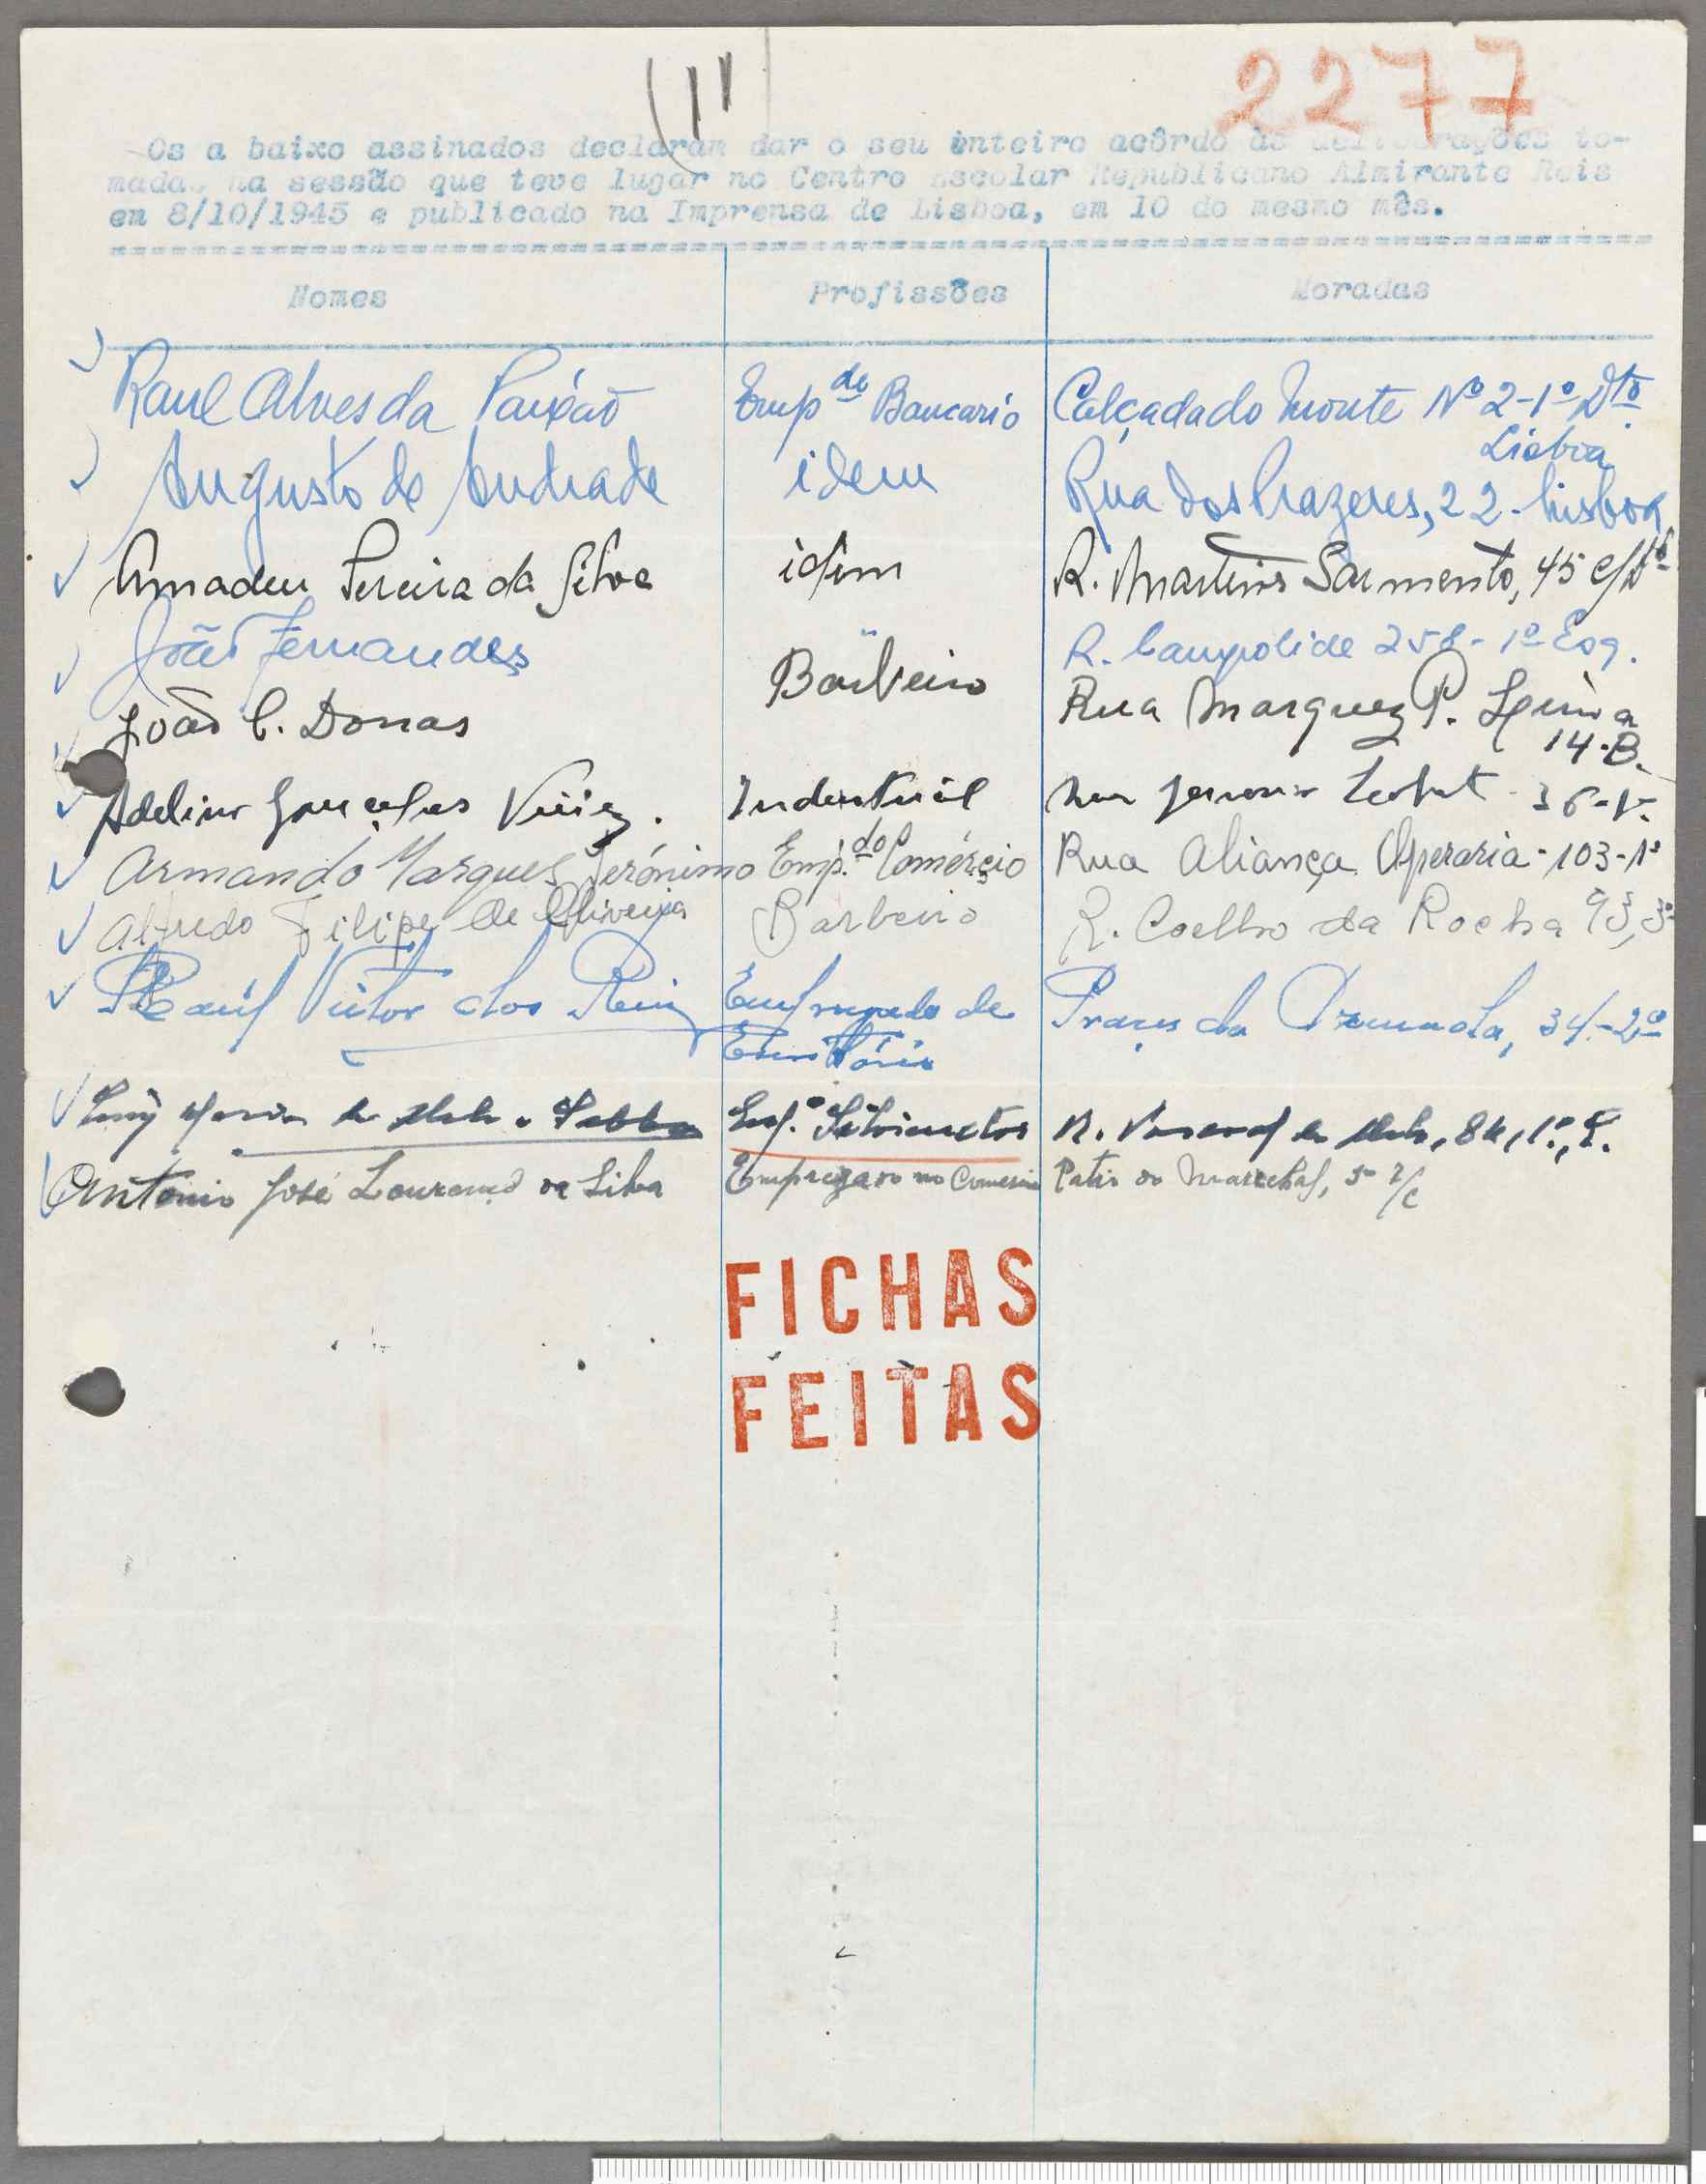 2277
Os a baixo assinados declaram dar o seu inteiro acôrdo às deliberações to-
madas na sessão que teve lugar no Centro Escolar Republicano Almirante Reis
em 8/10/1945 e publicado na Imprensa de Lisboa, em 10 do mesmo mês.
Nomes Profissões Moradas
Raul Alves da Paixão Emp do Bancario Calçada do Monte Nº 2-1º Dto.
Lisboa
Augusto de Andrade idem Rua dos Prazeres, 22 - Lisboa
Amadeu Pereira da Silva idem R. Martins Sarmento, 45
João Fernandes " R. Campolide 258-1º Esq.
João C. Donas Barbeiro Rua Marquez P. Lima
14-B.
Adelino Gonçalves Industrial 36-1º
Armando Marques Jerónimo Emp. do Comércio Rua Aliança Operaria-103-1º
Alfredo Filipe de Oliveira Barbeiro R. Coelho da Rocha 93, 3º
Raúl Victor dos Reis Empregado de Praça da Armada, 34-2º
Escritório
de Mello e Eng.º Silvicultor 84, 1º, E.
António José Lourenço da Silva Empregado no Comercio Patio do Marechal, 5 r/c
FICHAS
FEITAS